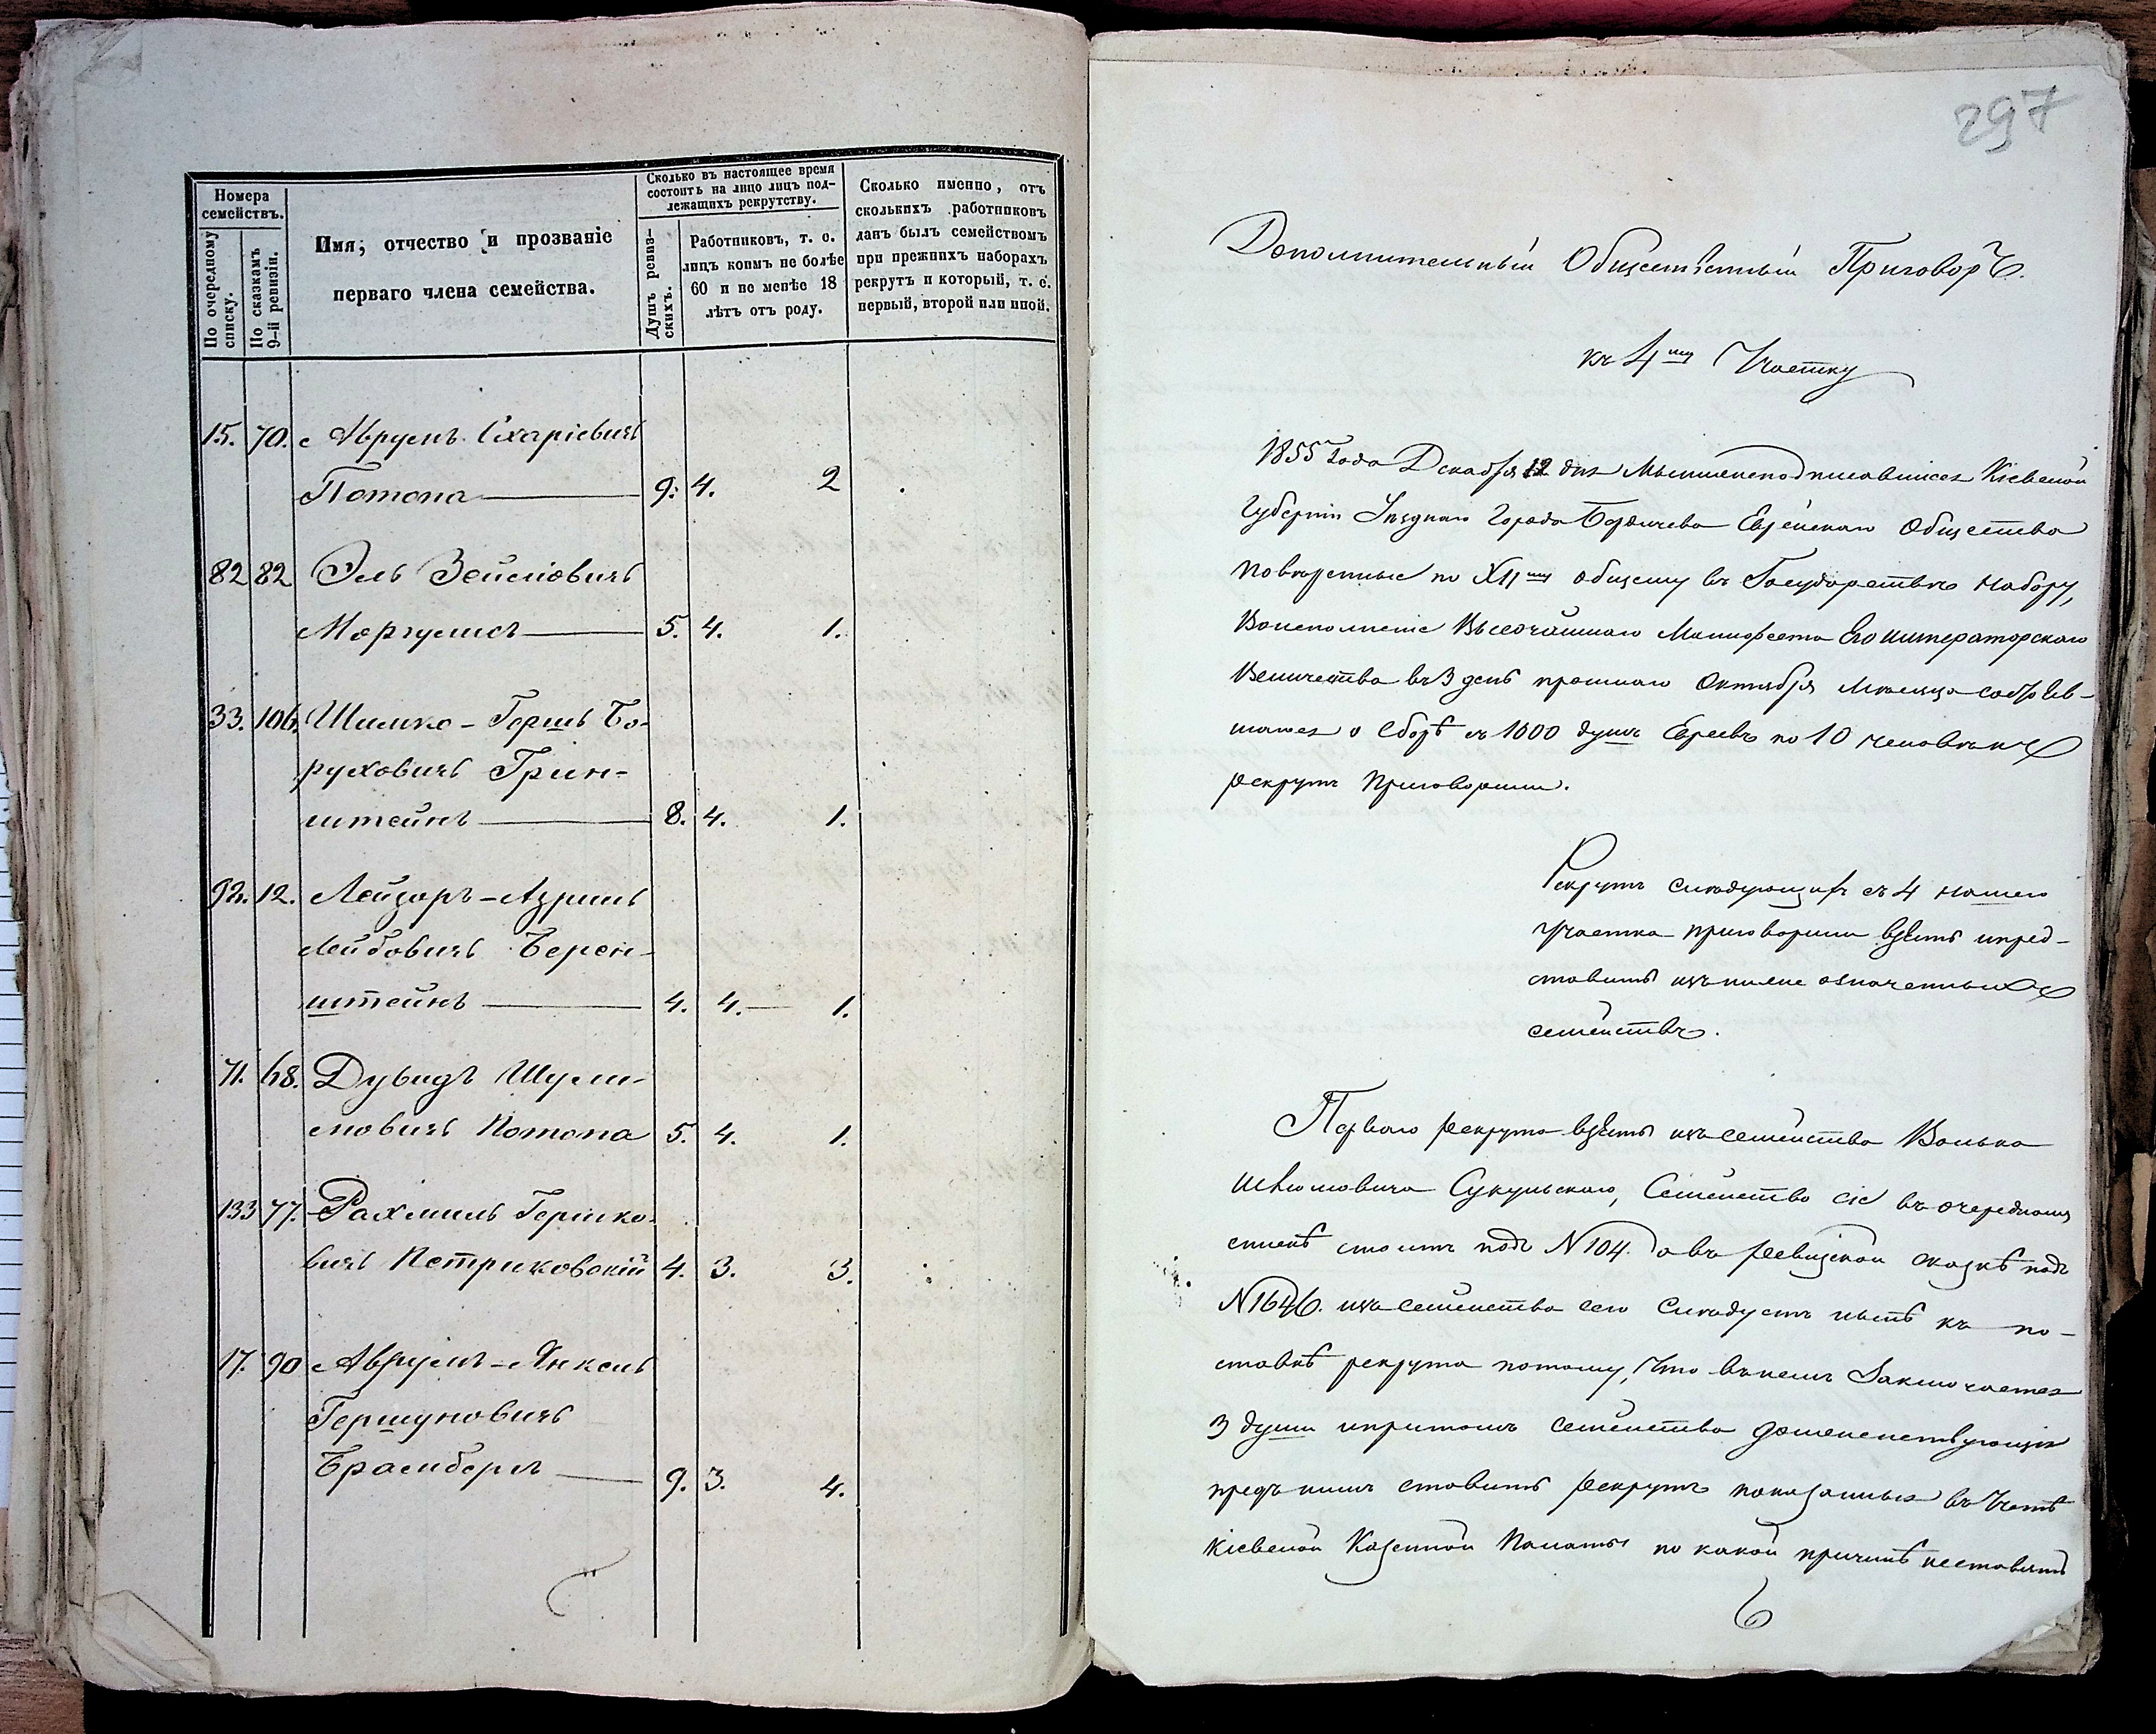 Номера семействъ.
По очередному списку.
По сказкамъ 9-й ревизіи.
Имя, отчество и прозваніе
перваго члена семейства.
Сколько въ настоящее время
состоитъ на лицо лицъ под-
лежащихъ рекрутству.
Душъ ревиз-
скихъ.
Работниковъ, т. е.
лицъ коимъ не болѣе
60 и не менѣе 18
лѣтъ отъ роду.
Сколько именно, отъ
сколькихъ работниковъ
данъ былъ семействомъ
при прежнихъ наборахъ
рекрутъ и который, т. е.
первый, второй или иной.
15. 70. Аврумъ Схаріевичъ
Потопа 9. 4. 2
82 82 Эль Зейліовичъ
Моргулисъ 5. 4. 1.
33. 106. Шимко-Гершь Бо-
руховичъ Грин-
штейнъ 8. 4. 1.
92. 12. Лейзоръ-Азриль
Лейбовичъ Берен-
штейнъ 4. 4. 1.
71. 68. Дувидъ Шули-
мовичъ Потопа 5. 4. 1.
133 77. Рахмиль Гершко-
вичъ Петриковскій 4. 3. 3.
17. 90 Аврумъ-Янкель
Гершуновичъ
9. 3. 4.
297
Дополнительный Общественный Приговоръ.
къ 4му Участку
1855 Года Декабря 12 дня Мынижеподписавшіеся Кіевской
Губерніи Уѣзднаго Города Бердичева Еврейскаго Общества
повѣренные по XIIму общему въ Государствѣ набору,
Воисполненіе Высочайшаго Манифеста Его императорскаго
Величества въ 3 день прошлаго Октября мѣсяца состояв-
шагося о сборѣ съ 1000 душъ Евреевъ по 10 человѣкъ
рекрутъ Приговорили.
Рекрутъ слѣдующихъ съ 4 нашего
участка приговорили взять ипред-
ставить изъниже означенныхъ
семействъ.
Перваго рекрута взять изъсемейства Волька
Сукульскаго, Семейство сіе въ очередномъ
спискѣ стоитъ подъ N 104. а въ ревизской сказкѣ подъ
N 1646. изъ семейства сего слѣдуетъ нынѣ къ по-
ставкѣ рекрута потому, что въ немъ Заключается
3 души ипритомъ семейства
предъ нимъ ставить рекрутъ показанныя въ
Кіевской Казенной Палаты по какой причинѣ неставить